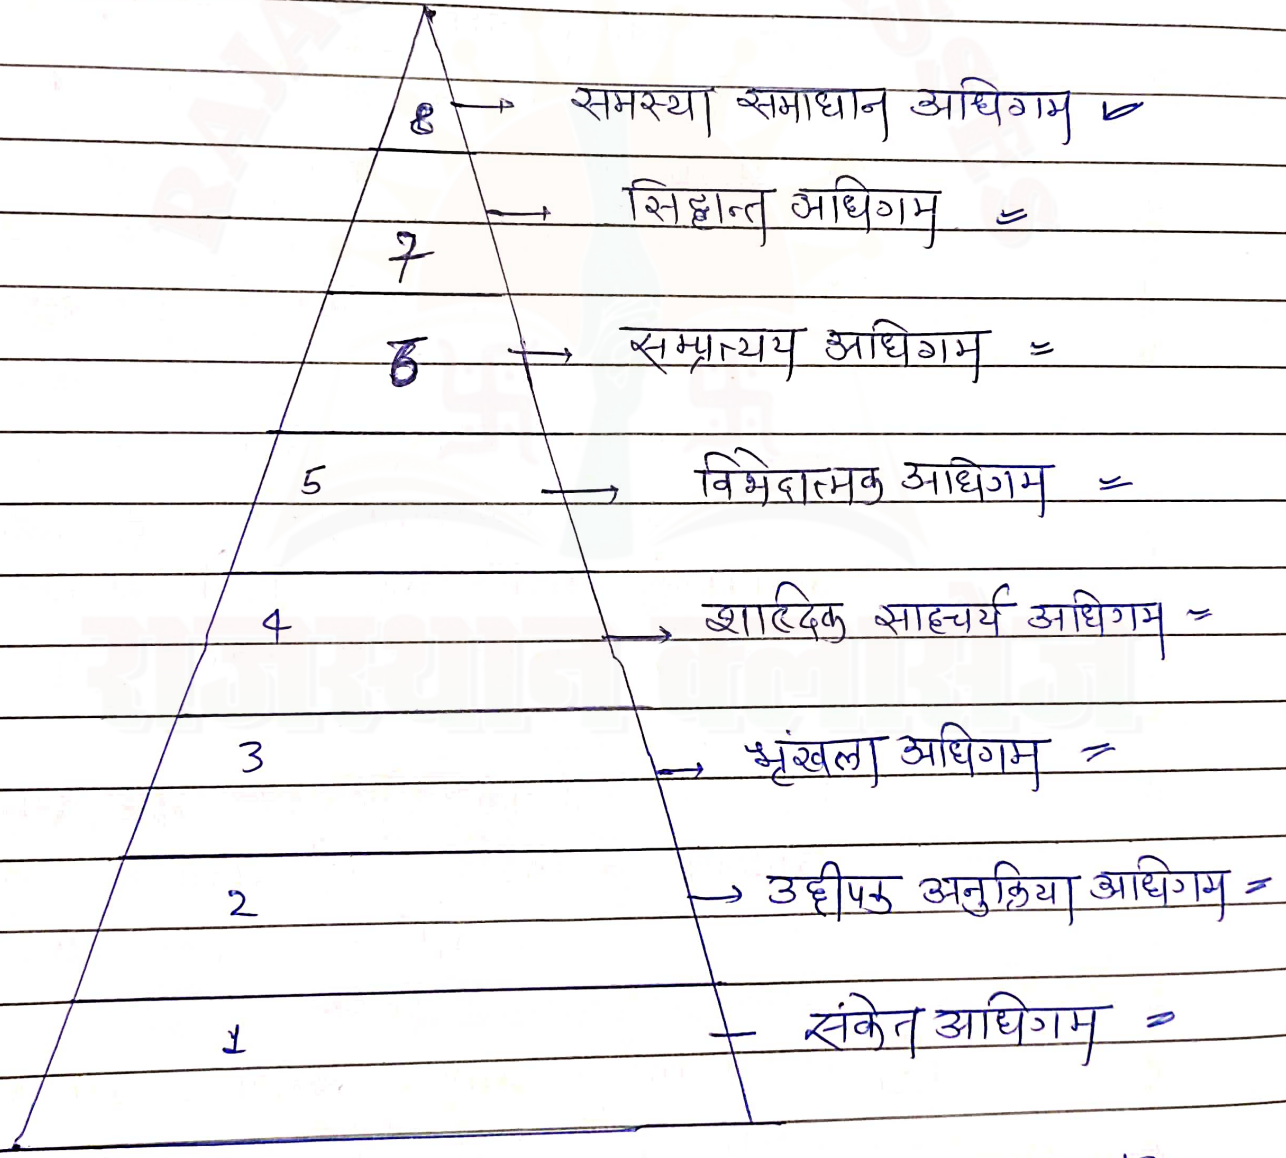 8 → समस्या समाधान अधिगम
→ सिद्धान्त अधिगम =
7
6 → सम्प्रत्यय अधिगम =
5 → विभेदात्मक अधिगम =
4 → शाब्दिक साहचर्य अधिगम =
3 → श्रृंखला अधिगम =
2 → उद्दीपक अनुक्रिया अधिगम =
1 — संकेत अधिगम =
राजस्थान क्लासेज